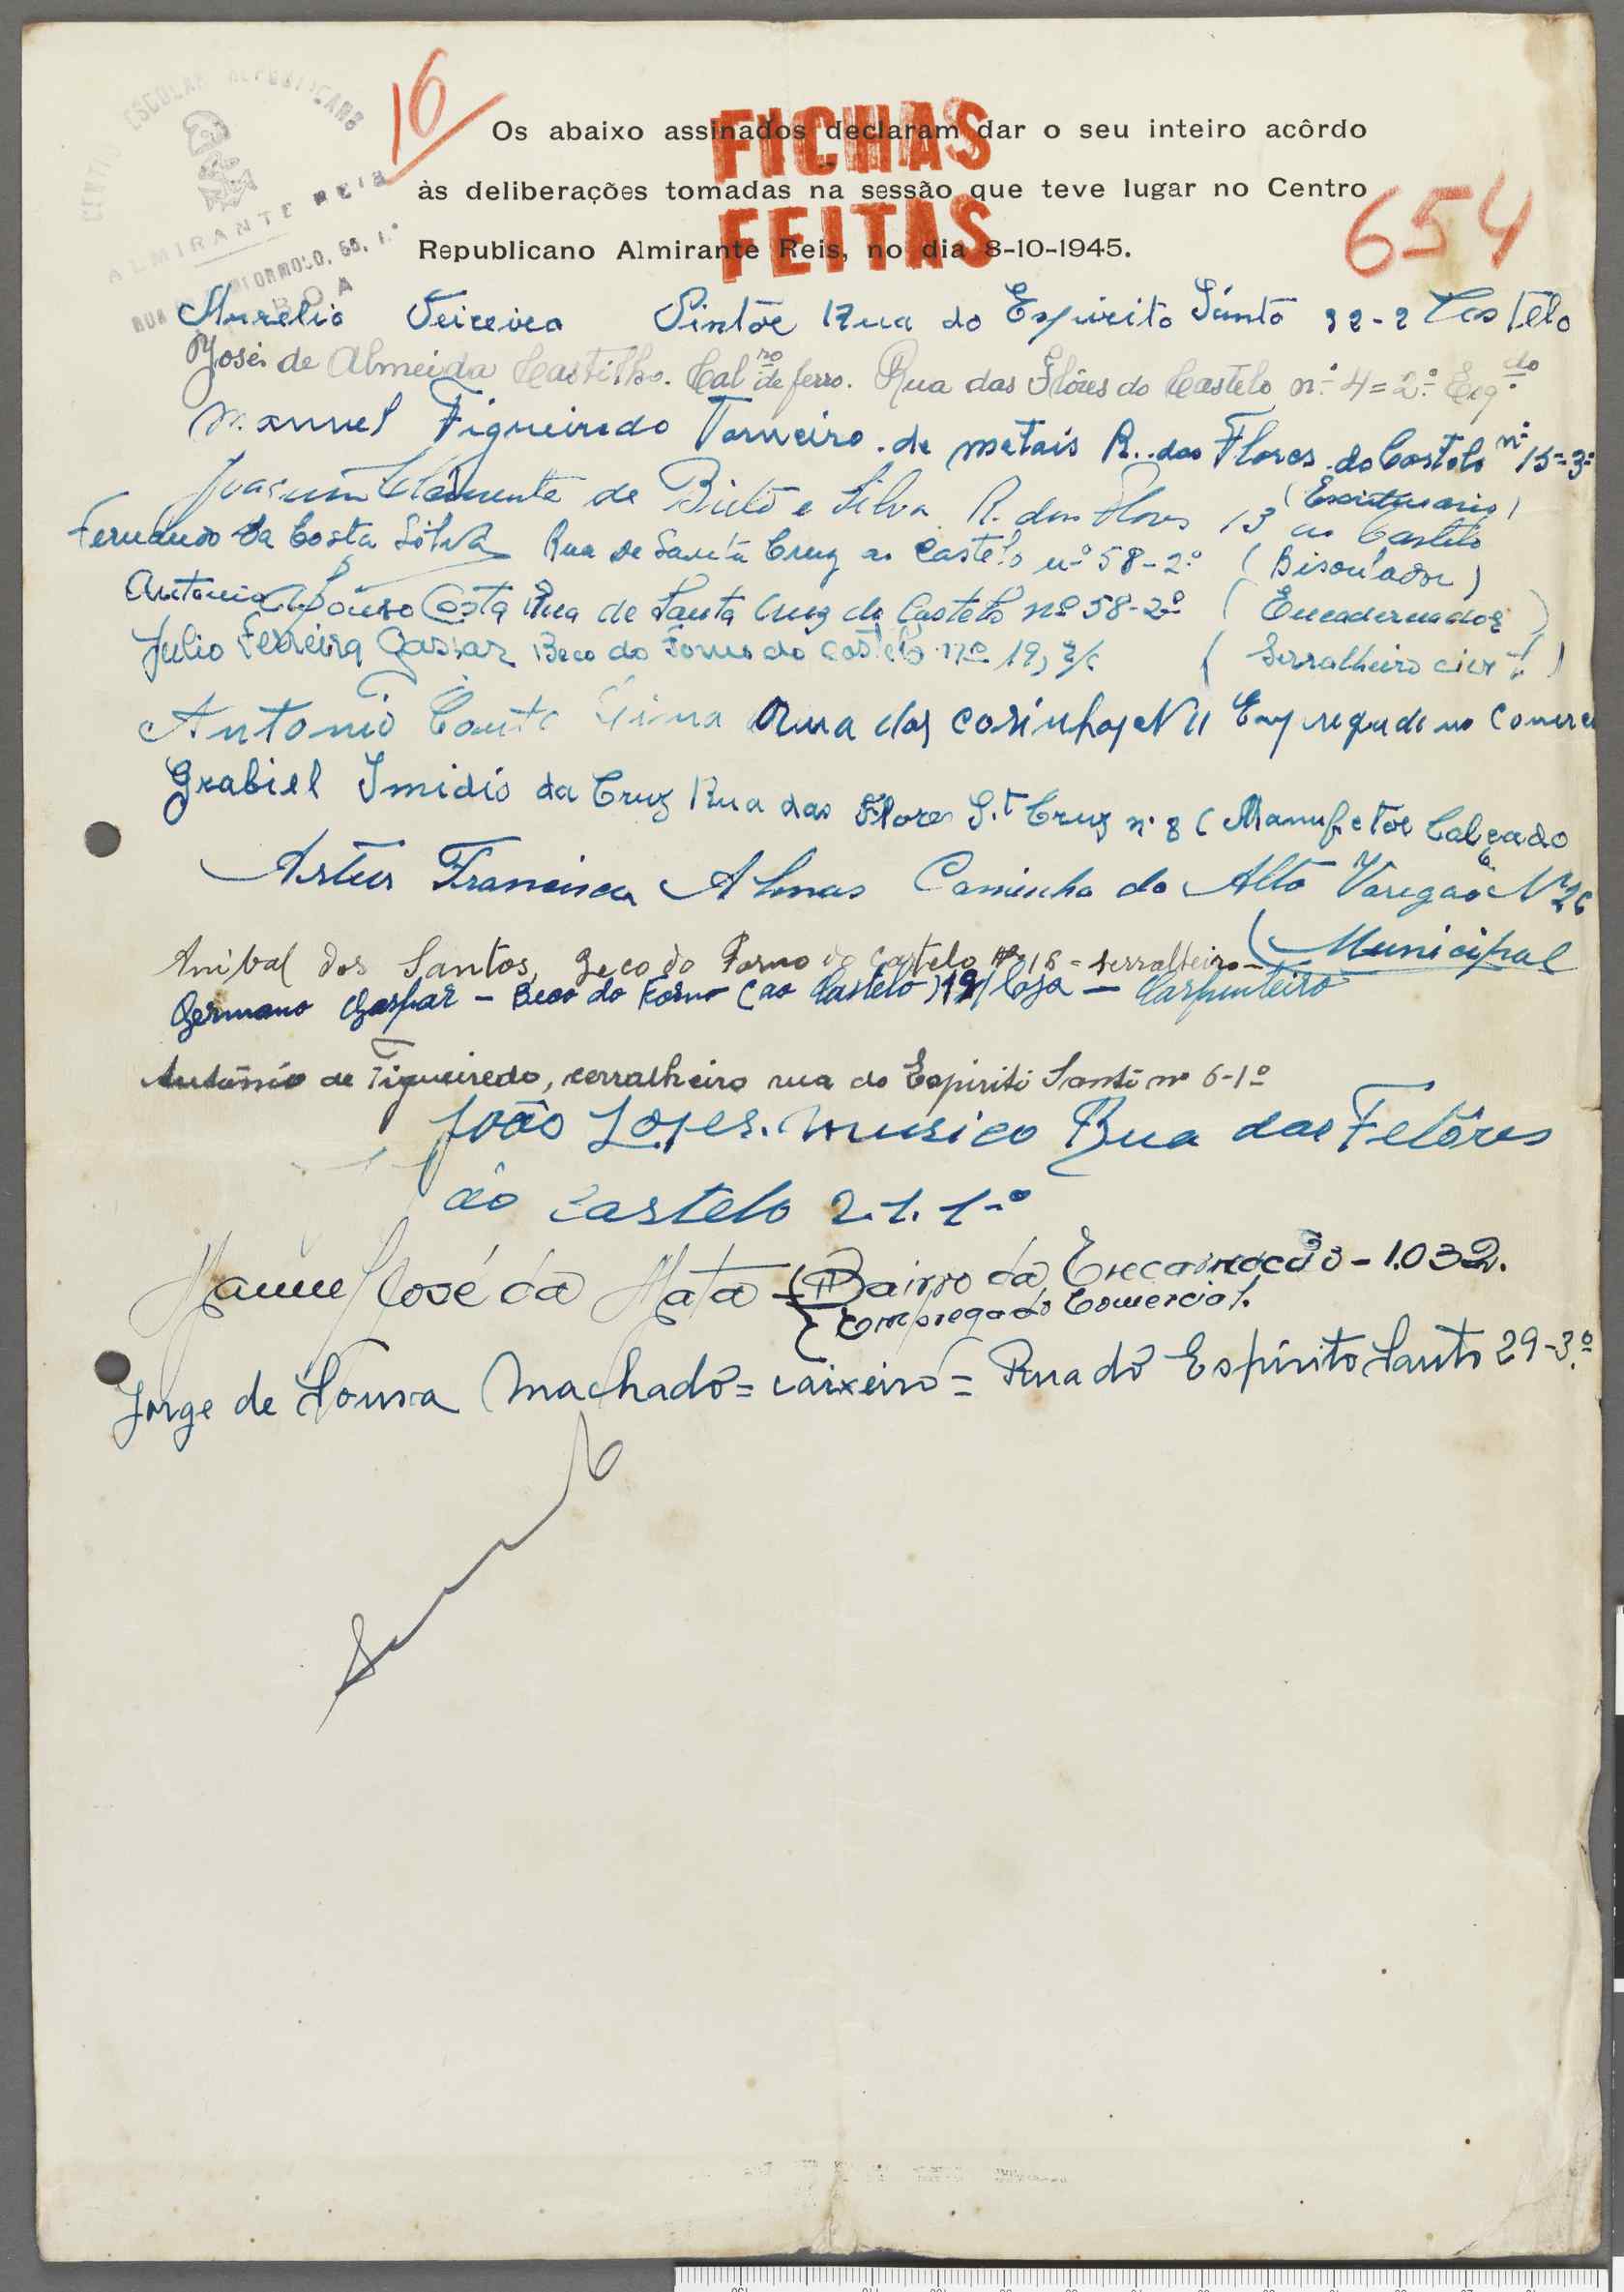 ESCOLAR REPUBLICANO
ALMIRANTE REIS
16
FICHAS
FEITAS
654
Os abaixo assinados declaram dar o seu inteiro acôrdo
às deliberações tomadas na sessão que teve lugar no Centro
Republicano Almirante Reis, no dia 8-10-1945.
Aurelio Teixeira Pintôr Rua do Espirito Santo 32-2 Castelo
José de Almeida Castilho. Cal.ro de ferro. Rua das Flôres do Castelo n.º 4=2.º Esq.do
Manuel Figueiredo Torneiro de metais R. das Flores do Castelo nº 15=3º
Joaquim Clemente de Brito e Silva R. das Flores 13 ao Castelo (Escriturario)
Fernando da Costa Silva Rua de Santa Cruz ao Castelo nº 58-2º (Biselador)
Antonio Afonso Costa Rua de Santa Cruz do Castelo nº 58-2º (Encadernador)
Julio Ferreira Gaspar Beco do Forno do Castelo nº 19, r/c (Serralheiro civil)
Antonio Couto Lima Rua das cosinhas N 11 Empregado no Comercio
Grabiel Imidio da Cruz Rua das Flores S.t Cruz nº 8 (Manufctor Calçado
Artur Francisco Almas Caminho do Alto Varegão N 26
(Municipal
Anibal dos Santos, Beco do Forno do Castelo Nº 16 - serralheiro -
Germano Gaspar - Beco do Forno (ao Castelo) 19/ loja - Carpinteiro
António de Figueiredo, serralheiro rua do Espirito Santo nº 6-1º
João Lopes. musico Rua das Felôres
ao Castelo 21. 1º
Jaime José da Mata - (Bairro da Encarnação - 1032.
(Empregado Comercial.
Jorge de Sousa Machado = caixeiro = Rua do Espírito Santo 29-3.º